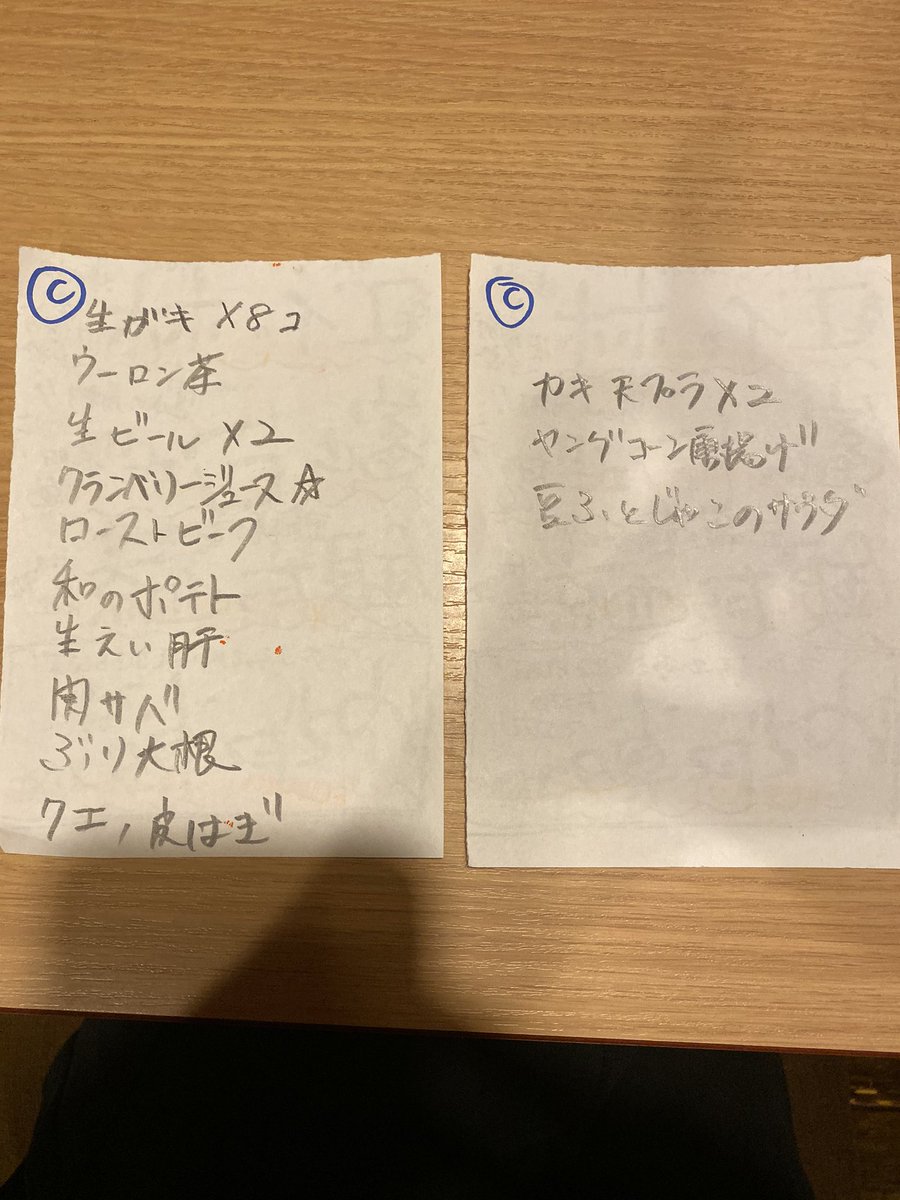 C
生がキ×8コ
ウーロン茶
生ビール×2
クランベリージュース☆
ローストビーフ
和のポテト
生えい肝
関サバ
ぶり大根
クエ、皮はぎ
C
カキ天プラ×2
ヤングコーン唐揚げ
豆ふとじゃこのサラダ